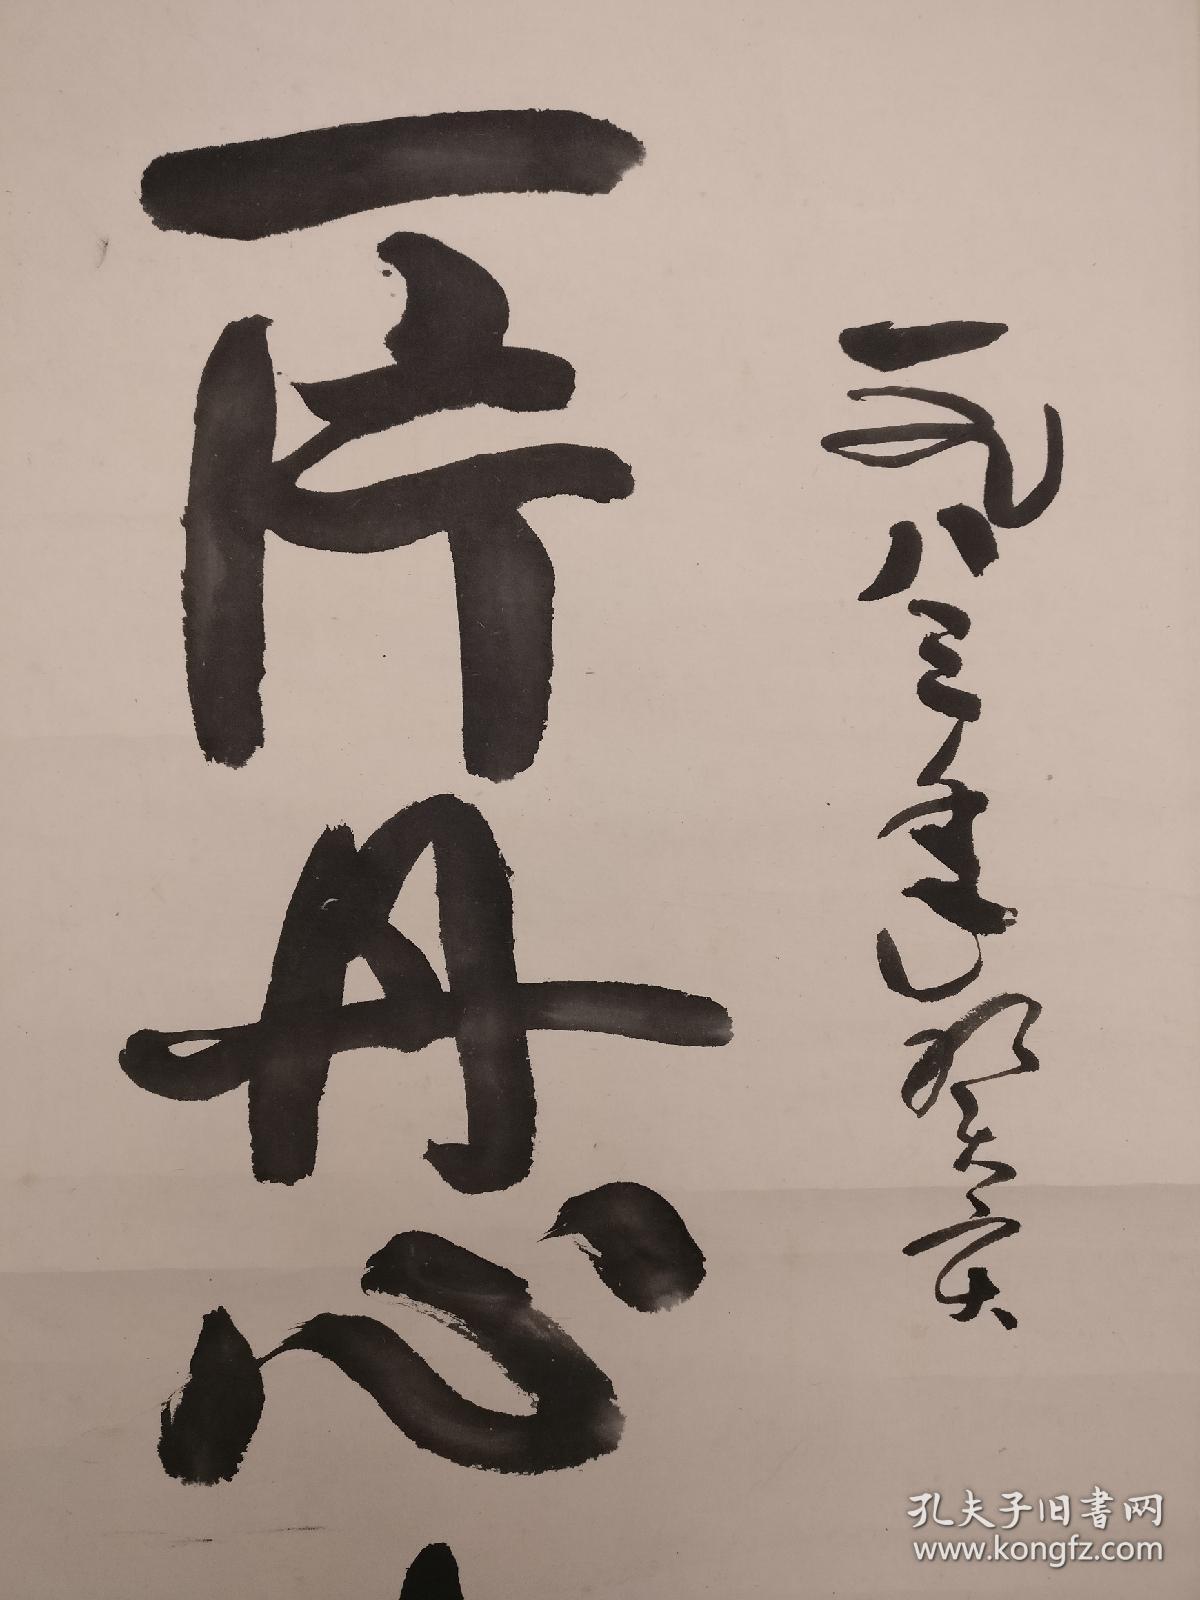 一九八三年癸亥
一片丹心
孔夫子旧書网
www.kongfz.com